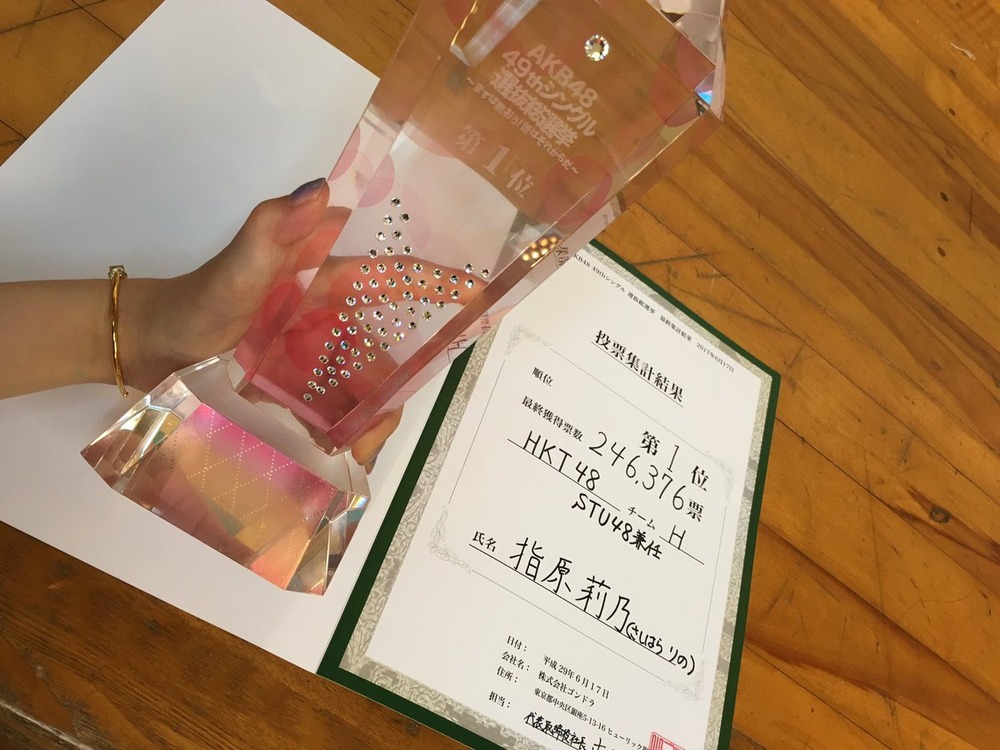 AKB48
49thシングル
選抜総選挙
~まずは戦おう!話はそれからだ~
第1位
AKB48 49thシングル 選抜総選挙 最終集計結果 2017年6月17日
投票集計結果
順位 第1位
最終獲得票数 246,376票
HKT48 チーム H
STU48兼任
氏名 指原莉乃(さしはら りの)
日付: 平成29年6月17日
会社名: 株式会社ゴンドラ
住所: 東京都中央区銀座5-13-16 ヒューリック
担当: 代表取締役社長